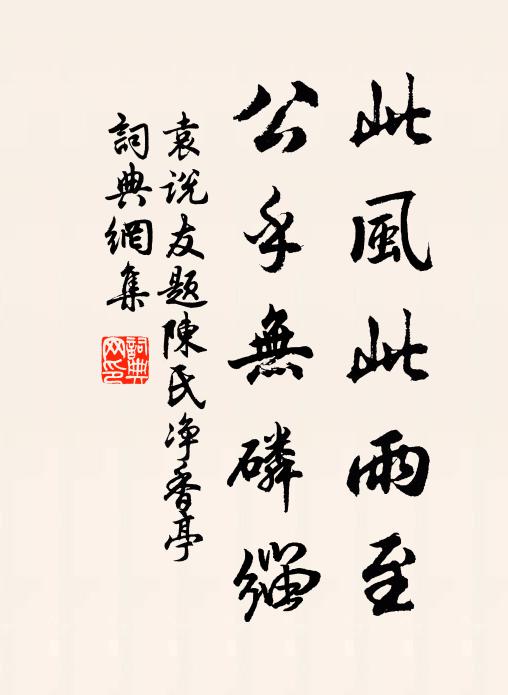 此風此雨至
公乎無磷緇
袁说友題陳氏净香亭
詞典網集
詞典网印